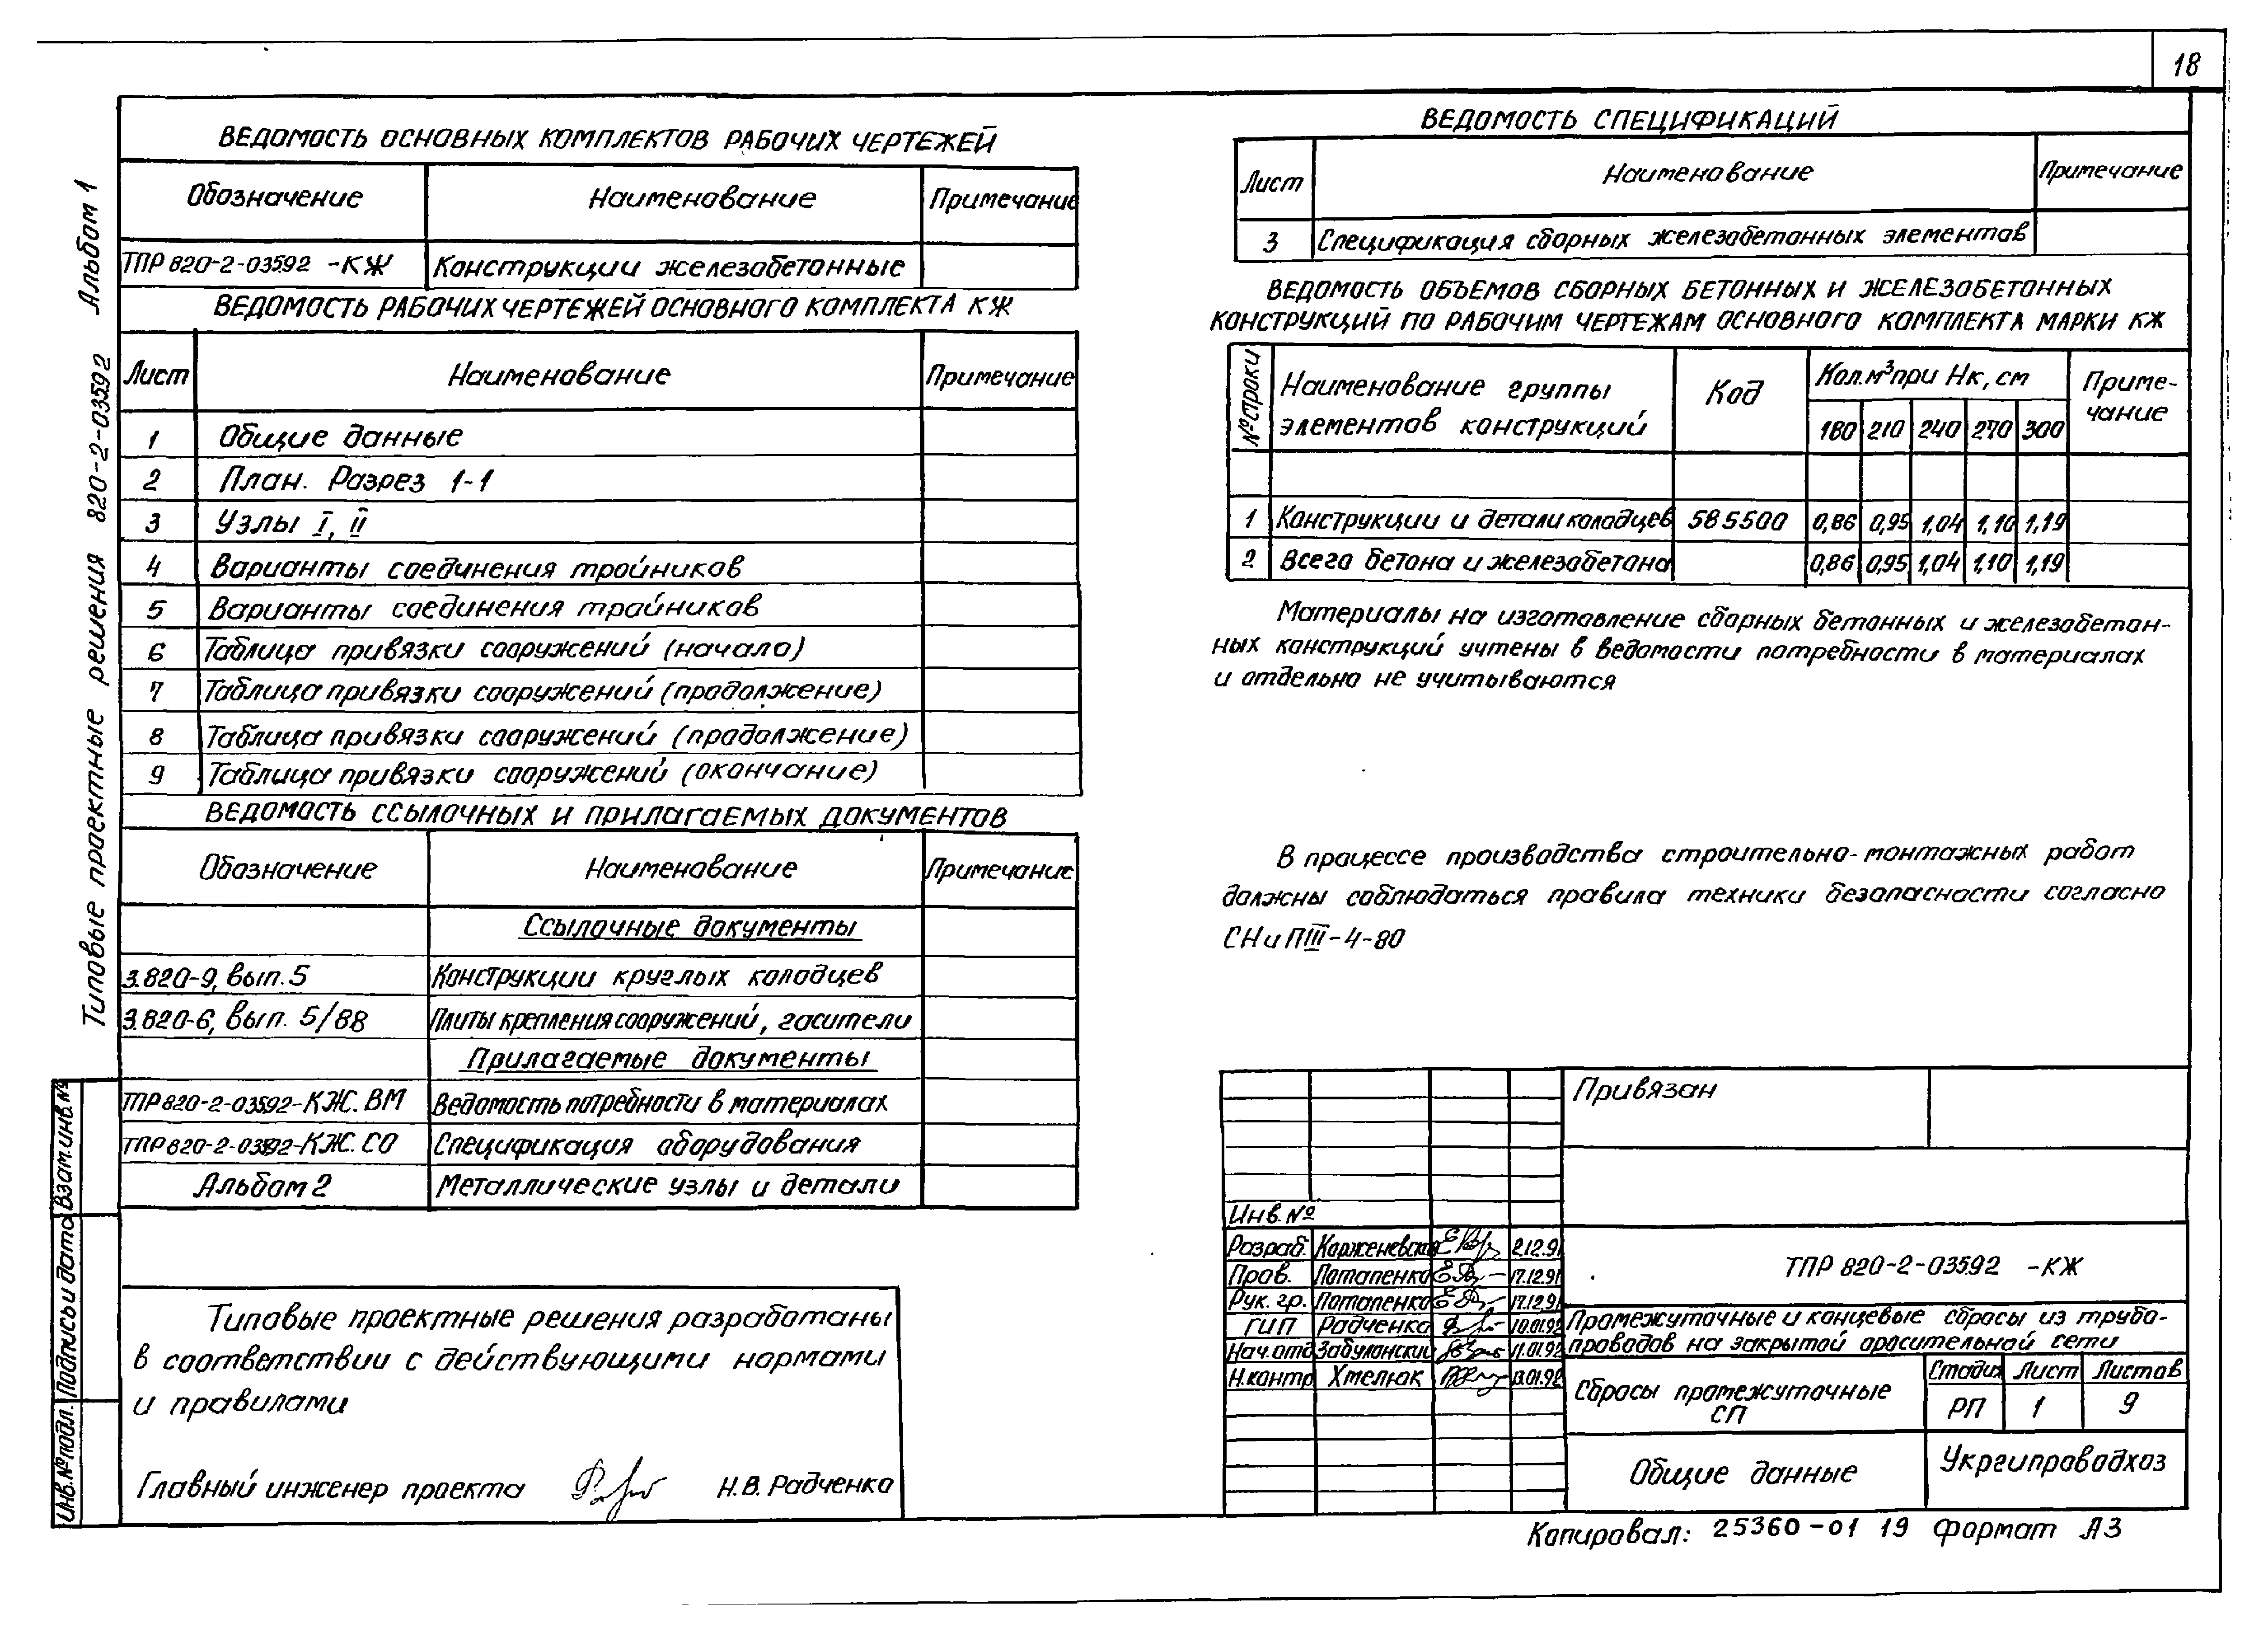 18
Типовые проектные решения 820-2-03592 Альбом 1
ВЕДОМОСТЬ ОСНОВНЫХ КОМПЛЕКТОВ РАБОЧИХ ЧЕРТЕЖЕЙ
Обозначение Наименование Примечание
ТПР 820-2-03592 -КЖ Конструкции железобетонные
ВЕДОМОСТЬ РАБОЧИХ ЧЕРТЕЖЕЙ ОСНОВНОГО КОМПЛЕКТА КЖ
Лист Наименование Примечание
1 Общие данные
2 План. Разрез 1-1
3 Узлы I, II
4 Варианты соединения тройников
5 Варианты соединения тройников
6 Таблица привязки сооружений (начало)
7 Таблица привязки сооружений (продолжение)
8 Таблица привязки сооружений (продолжение)
9 Таблица привязки сооружений (окончание)
ВЕДОМОСТЬ ССЫЛОЧНЫХ И ПРИЛАГАЕМЫХ ДОКУМЕНТОВ
Обозначение Наименование Примечание
Ссылочные документы
3.820-9, вып. 5 Конструкции круглых колодцев
3.820-6, вып. 5/88 Плиты крепления сооружений, гасители
Прилагаемые документы
ТПР 820-2-03592-КЖ.ВМ Ведомость потребности в материалах
ТПР 820-2-03592-КЖ.СО Спецификация оборудования
Альбом 2 Металлические узлы и детали
Типовые проектные решения разработаны
в соответствии с действующими нормами
и правилами
Главный инженер проекта Н.В. Радченко
Инв.№ подл. Подпись и дата Взам.инв.№
ВЕДОМОСТЬ СПЕЦИФИКАЦИЙ
Лист Наименование Примечание
3 Спецификация сборных железобетонных элементов
ВЕДОМОСТЬ ОБЪЕМОВ СБОРНЫХ БЕТОННЫХ И ЖЕЛЕЗОБЕТОННЫХ
КОНСТРУКЦИЙ ПО РАБОЧИМ ЧЕРТЕЖАМ ОСНОВНОГО КОМПЛЕКТА МАРКИ КЖ
№ строки Наименование группы элементов конструкций Код Кол.м³ при Нк, см Приме-
чание
180 210 240 270 300
1 Конструкции и детали колодцев 585500 0,86 0,95 1,04 1,10 1,19
2 Всего бетона и железобетона 0,86 0,95 1,04 1,10 1,19
Материалы на изготовление сборных бетонных и железобетон-
ных конструкций учтены в ведомости потребности в материалах
и отдельно не учитываются
В процессе производства строительно-монтажных работ
должны соблюдаться правила техники безопасности согласно
СНиП III-4-80
Привязан
Инв.№
Разраб. Корженевская 2.12.91
Пров. Потапенко 17.12.91
Рук. гр. Потапенко 17.12.91
ГИП Радченко 10.01.92
Нач.отд Забуланский 11.01.92
Н.контр Хмелюк 13.01.92
ТПР 820-2-03592 -КЖ
Промежуточные и концевые сбросы из трубо-
проводов на закрытой оросительной сети
Сбросы промежуточные
СП
Стадия Лист Листов
РП 1 9
Общие данные
Укргипроводхоз
Копировал: 25360-01 19 Формат А3